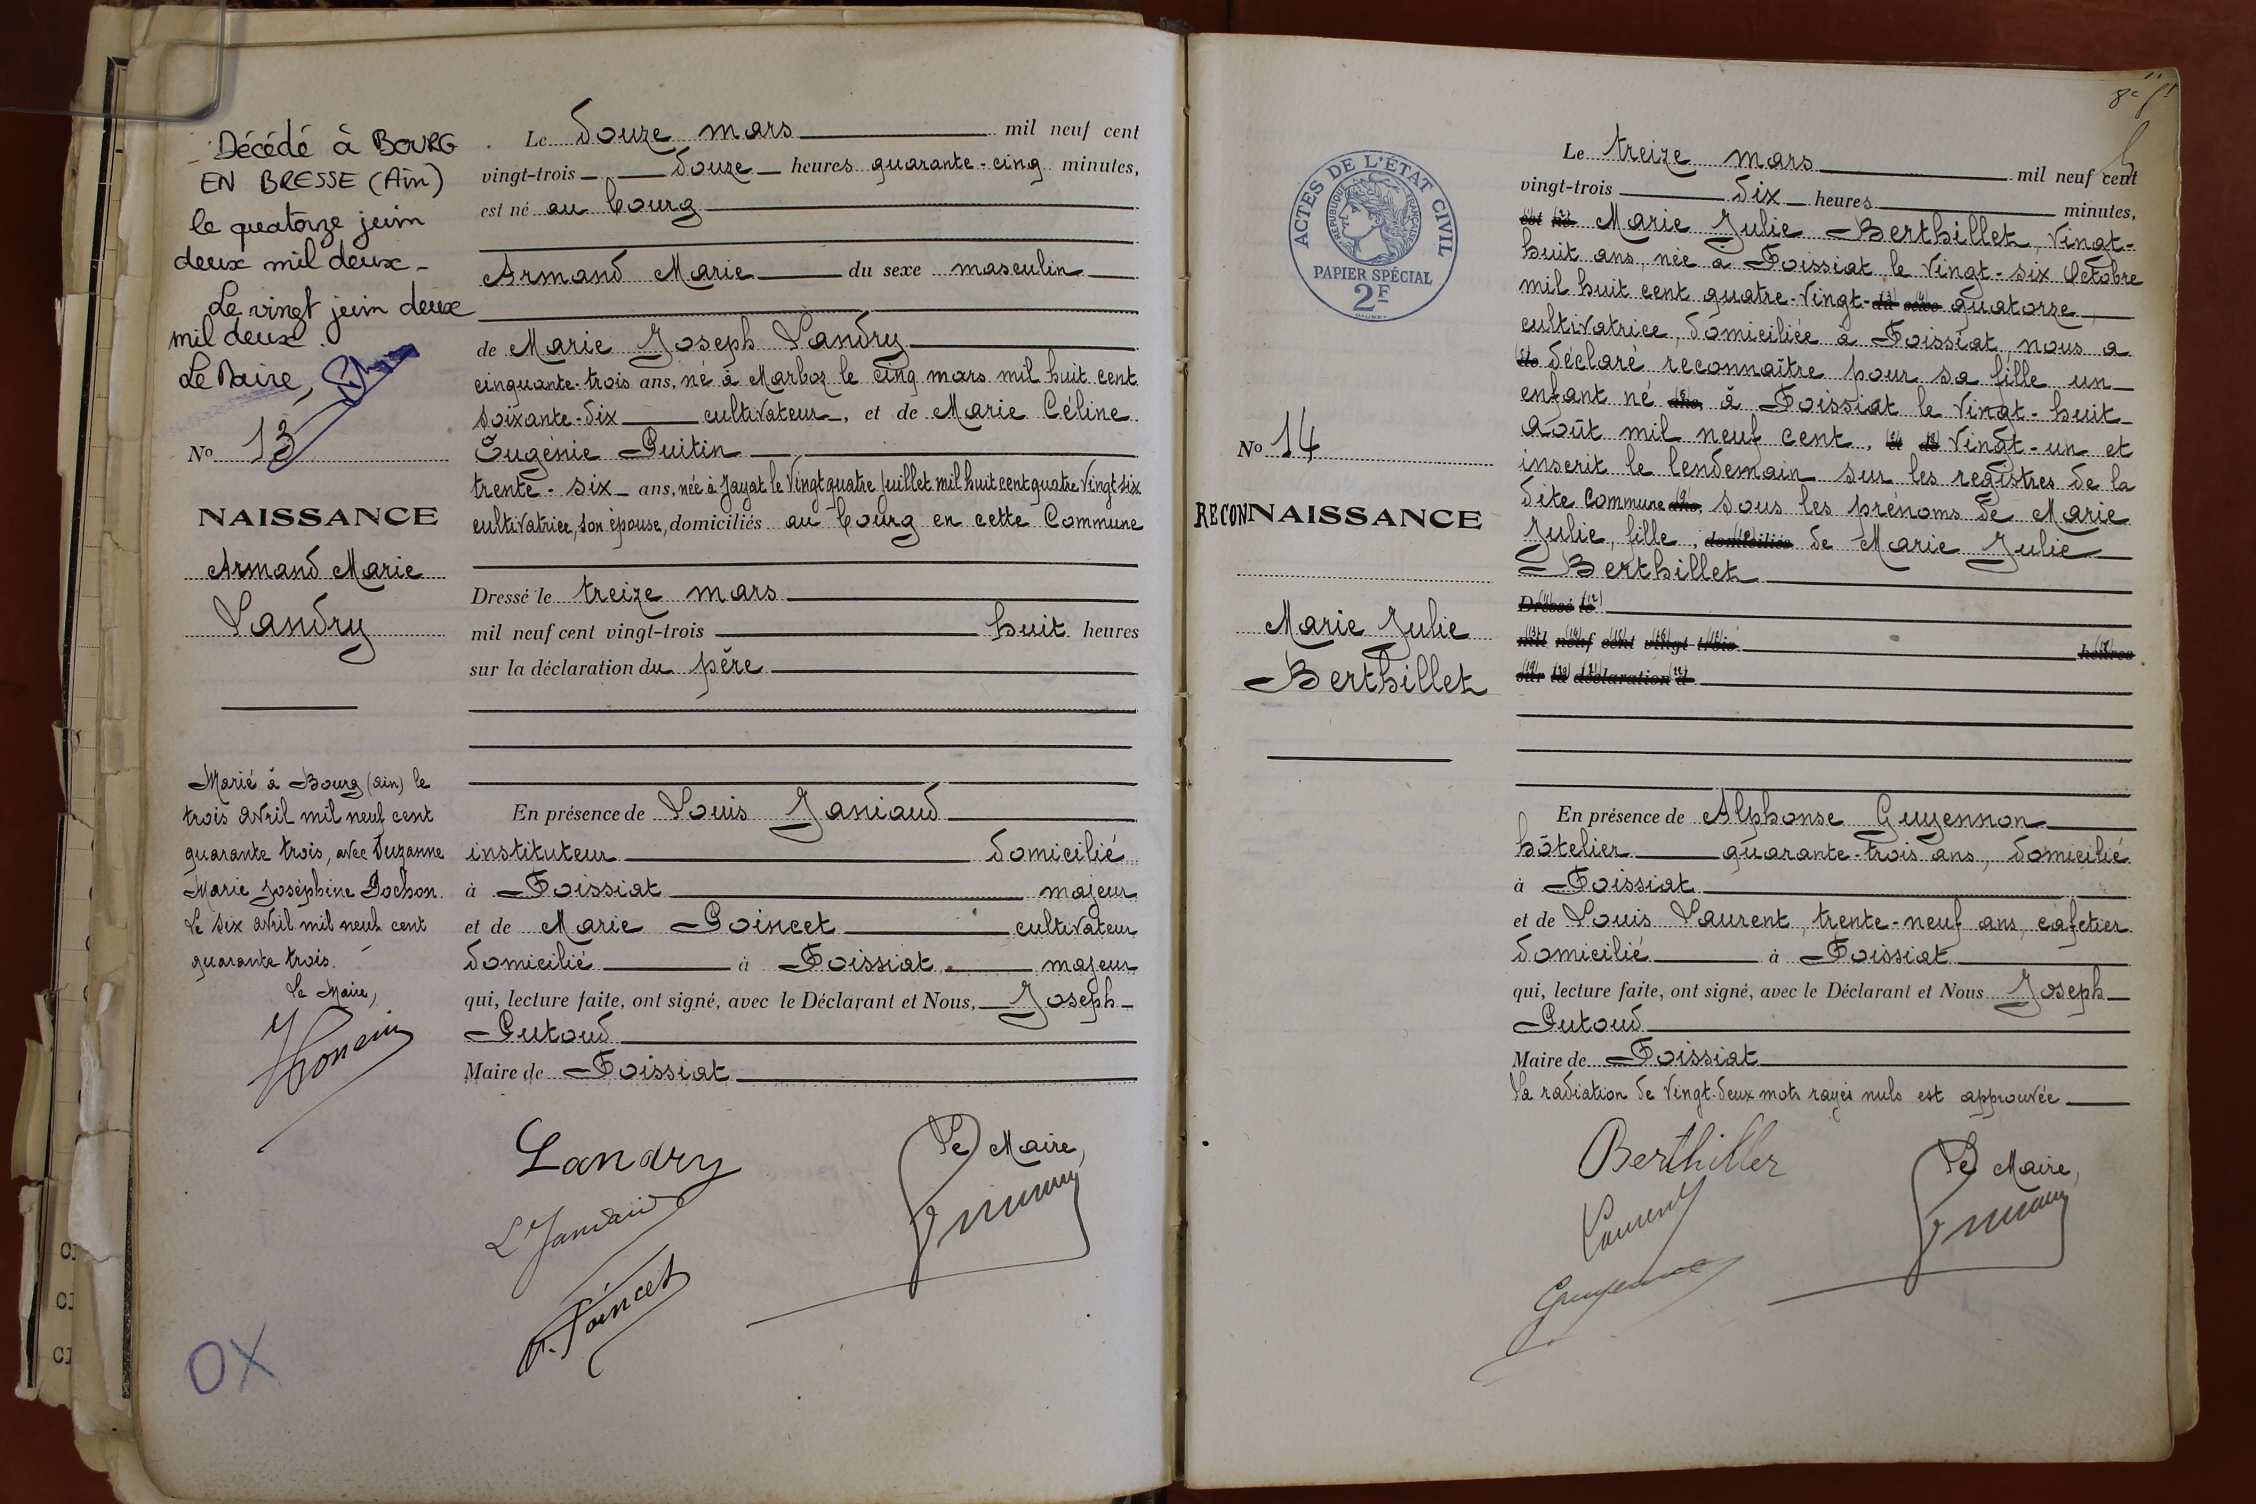 Décédé à BOURG
EN BRESSE (Ain)
le quatorze juin
deux mil deux -
Le vingt juin deux
mil deux.
Le Maire,
No 13
NAISSANCE
Armand Marie
Landry
Marié à Bourg (ain) le
trois avril mil neuf cent
quarante trois, avec Suzanne
Marie Joséphine Pochon.
Le six avril mil neuf cent
quarante trois.
Le Maire,
OX
Le douze mars mil neuf cent
vingt-trois douze heures quarante-cinq minutes,
est né au bourg
Armand Marie du sexe masculin
de Marie Joseph Landry
cinquante-trois ans, né à Marboz le cinq mars mil huit cent
soixante-dix cultivateur, et de Marie Céline
Eugénie Guitin
trente-six ans, née à Jayat le vingt quatre juillet mil huit cent quatre vingt six
cultivatrice, son épouse, domiciliés au bourg en cette Commune
Dressé le treize mars
mil neuf cent vingt-trois huit heures
sur la déclaration du père
En présence de Louis Janiaud
instituteur domicilié
à Foissiat majeur
et de Marie Poincet cultivateur
domicilié à Foissiat majeur
qui, lecture faite, ont signé, avec le Déclarant et Nous, Joseph
Putoud
Maire de Foissiat
Le Maire,
Landry
L Janiaud
Poincet
ACTES DE L'ÉTAT CIVIL
RÉPUBLIQUE FRANÇAISE
PAPIER SPÉCIAL
2F
No 14
RECONNAISSANCE
Marie Julie
Berthillet
Le treize mars mil neuf cent
vingt-trois dix heures minutes,
est né Marie Julie Berthillet, vingt-
huit ans, née à Foissiat le vingt-six Octobre
mil huit cent quatre-vingt-du sexe quatorze,
cultivatrice, domiciliée à Foissiat, nous a
de déclaré reconnaître pour sa fille un
enfant né ans, à Foissiat le vingt-huit
août mil neuf cent, et de vingt-un et
inscrit le lendemain sur les registres de la
dite Commune ans, sous les prénoms de Marie
Julie, fille, domiciliés de Marie Julie
Berthillet
Dressé le
mil neuf cent vingt-trois heures
sur la déclaration d
En présence de Alphonse Guyennon
hôtelier quarante-trois ans, domicilié
à Foissiat
et de Louis Laurent, trente-neuf ans, cafetier
domicilié à Foissiat
qui, lecture faite, ont signé, avec le Déclarant et Nous Joseph
Putoud
Maire de Foissiat
La radiation de vingt-deux mots rayés nuls est approuvée
Berthillet
Le Maire,
Laurent
Guyennon